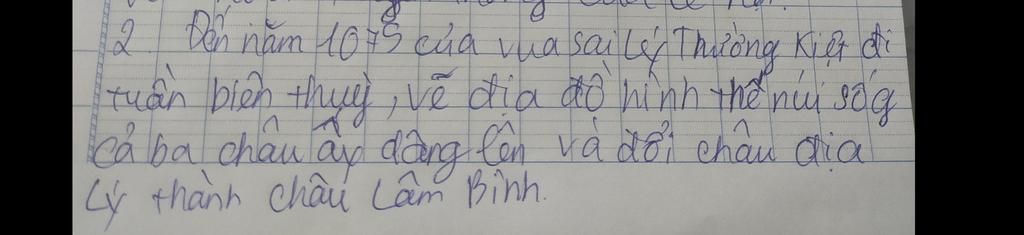 2 Đến năm 1075 của vua sai Lý Thường Kiệt đi
tuần biên thuỳ, vẽ địa đồ hình thế núi sóg
cả ba châu ấy dâng lên và đổi châu địa
Lý thành châu Lâm Bình.